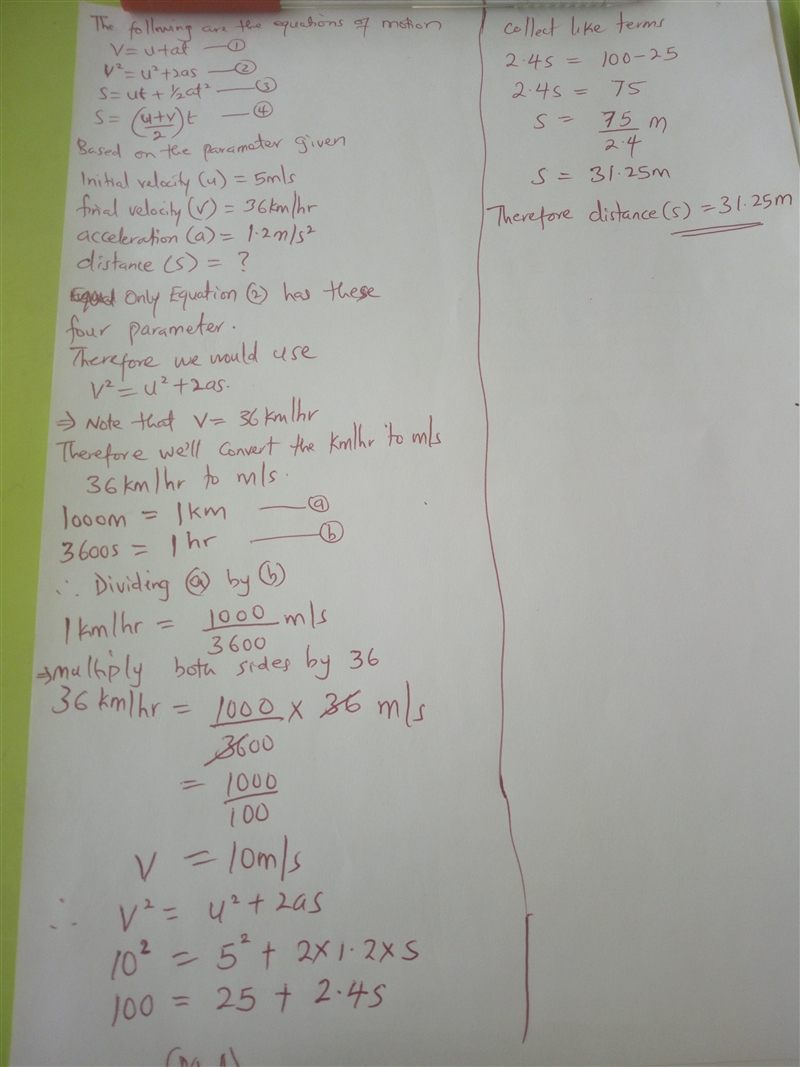 The following are the equations of motion
V = u+at —— ①
V² = u²+2as —— ②
S = ut + ½at² —— ③
S = (u+v/2)t —— ④
Based on the parameter given
Initial velocity (u) = 5m/s
final velocity (v) = 36km/hr
acceleration (a) = 1.2m/s²
distance (s) = ?
Only Equation ② has these
four parameter.
Therefore we would use
V² = u² + 2as.
⇒ Note that V = 36km/hr
Therefore we'll convert the km/hr to m/s
36km/hr to m/s.
1000m = 1km —— ⓐ
3600s = 1hr —— ⓑ
∴ Dividing ⓐ by ⓑ
1km/hr = 1000/3600 m/s
⇒ multiply both sides by 36
36km/hr = 1000/3600 × 36 m/s
= 1000/100
V = 10m/s
∴ V² = u² + 2as
10² = 5² + 2×1.2×s
100 = 25 + 2.4s
collect like terms
2.4s = 100-25
2.4s = 75
s = 75/2.4 m
s = 31.25m
Therefore distance(s) = 31.25m